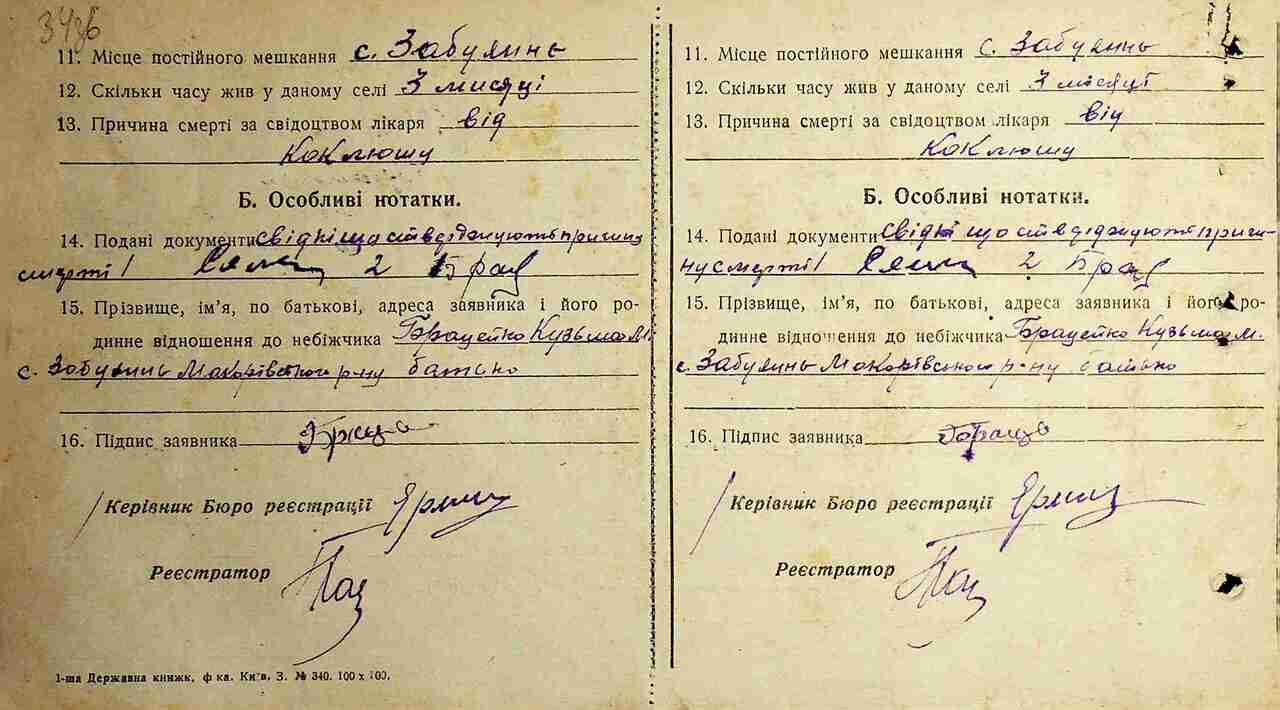 11. Місце постійного мешкання с. Забуянь
12. Скільки часу жив у даному селі 3 мисяці
13. Причина смерті за свідоцтвом лікаря від
Коклюшу
Б. Особливі нотатки.
14. Подані документи свідкі що стверджують причину
смерті 2
15. Прізвище, ім’я, по батькові, адреса заявника і його ро-
динне відношення до небіжчика Кузьма М.
с. Забуянь Макарівського р-ну батько
16. Підпис заявника
Керівник Бюро реєстрації
Реєстратор
1-ша Державна книжк. ф-ка. Київ. З. № 340. 100 х 100.
11. Місце постійного мешкання с. Забуянь
12. Скільки часу жив у даному селі 3 місяці
13. Причина смерті за свідоцтвом лікаря від
Коклюшу
Б. Особливі нотатки.
14. Подані документи свідкі що стверджують причи-
ну смерті 2
15. Прізвище, ім’я, по батькові, адреса заявника і його ро-
динне відношення до небіжчика Кузьма М.
с. Забуянь Макарівського р-ну батько
16. Підпис заявника
Керівник Бюро реєстрації
Реєстратор